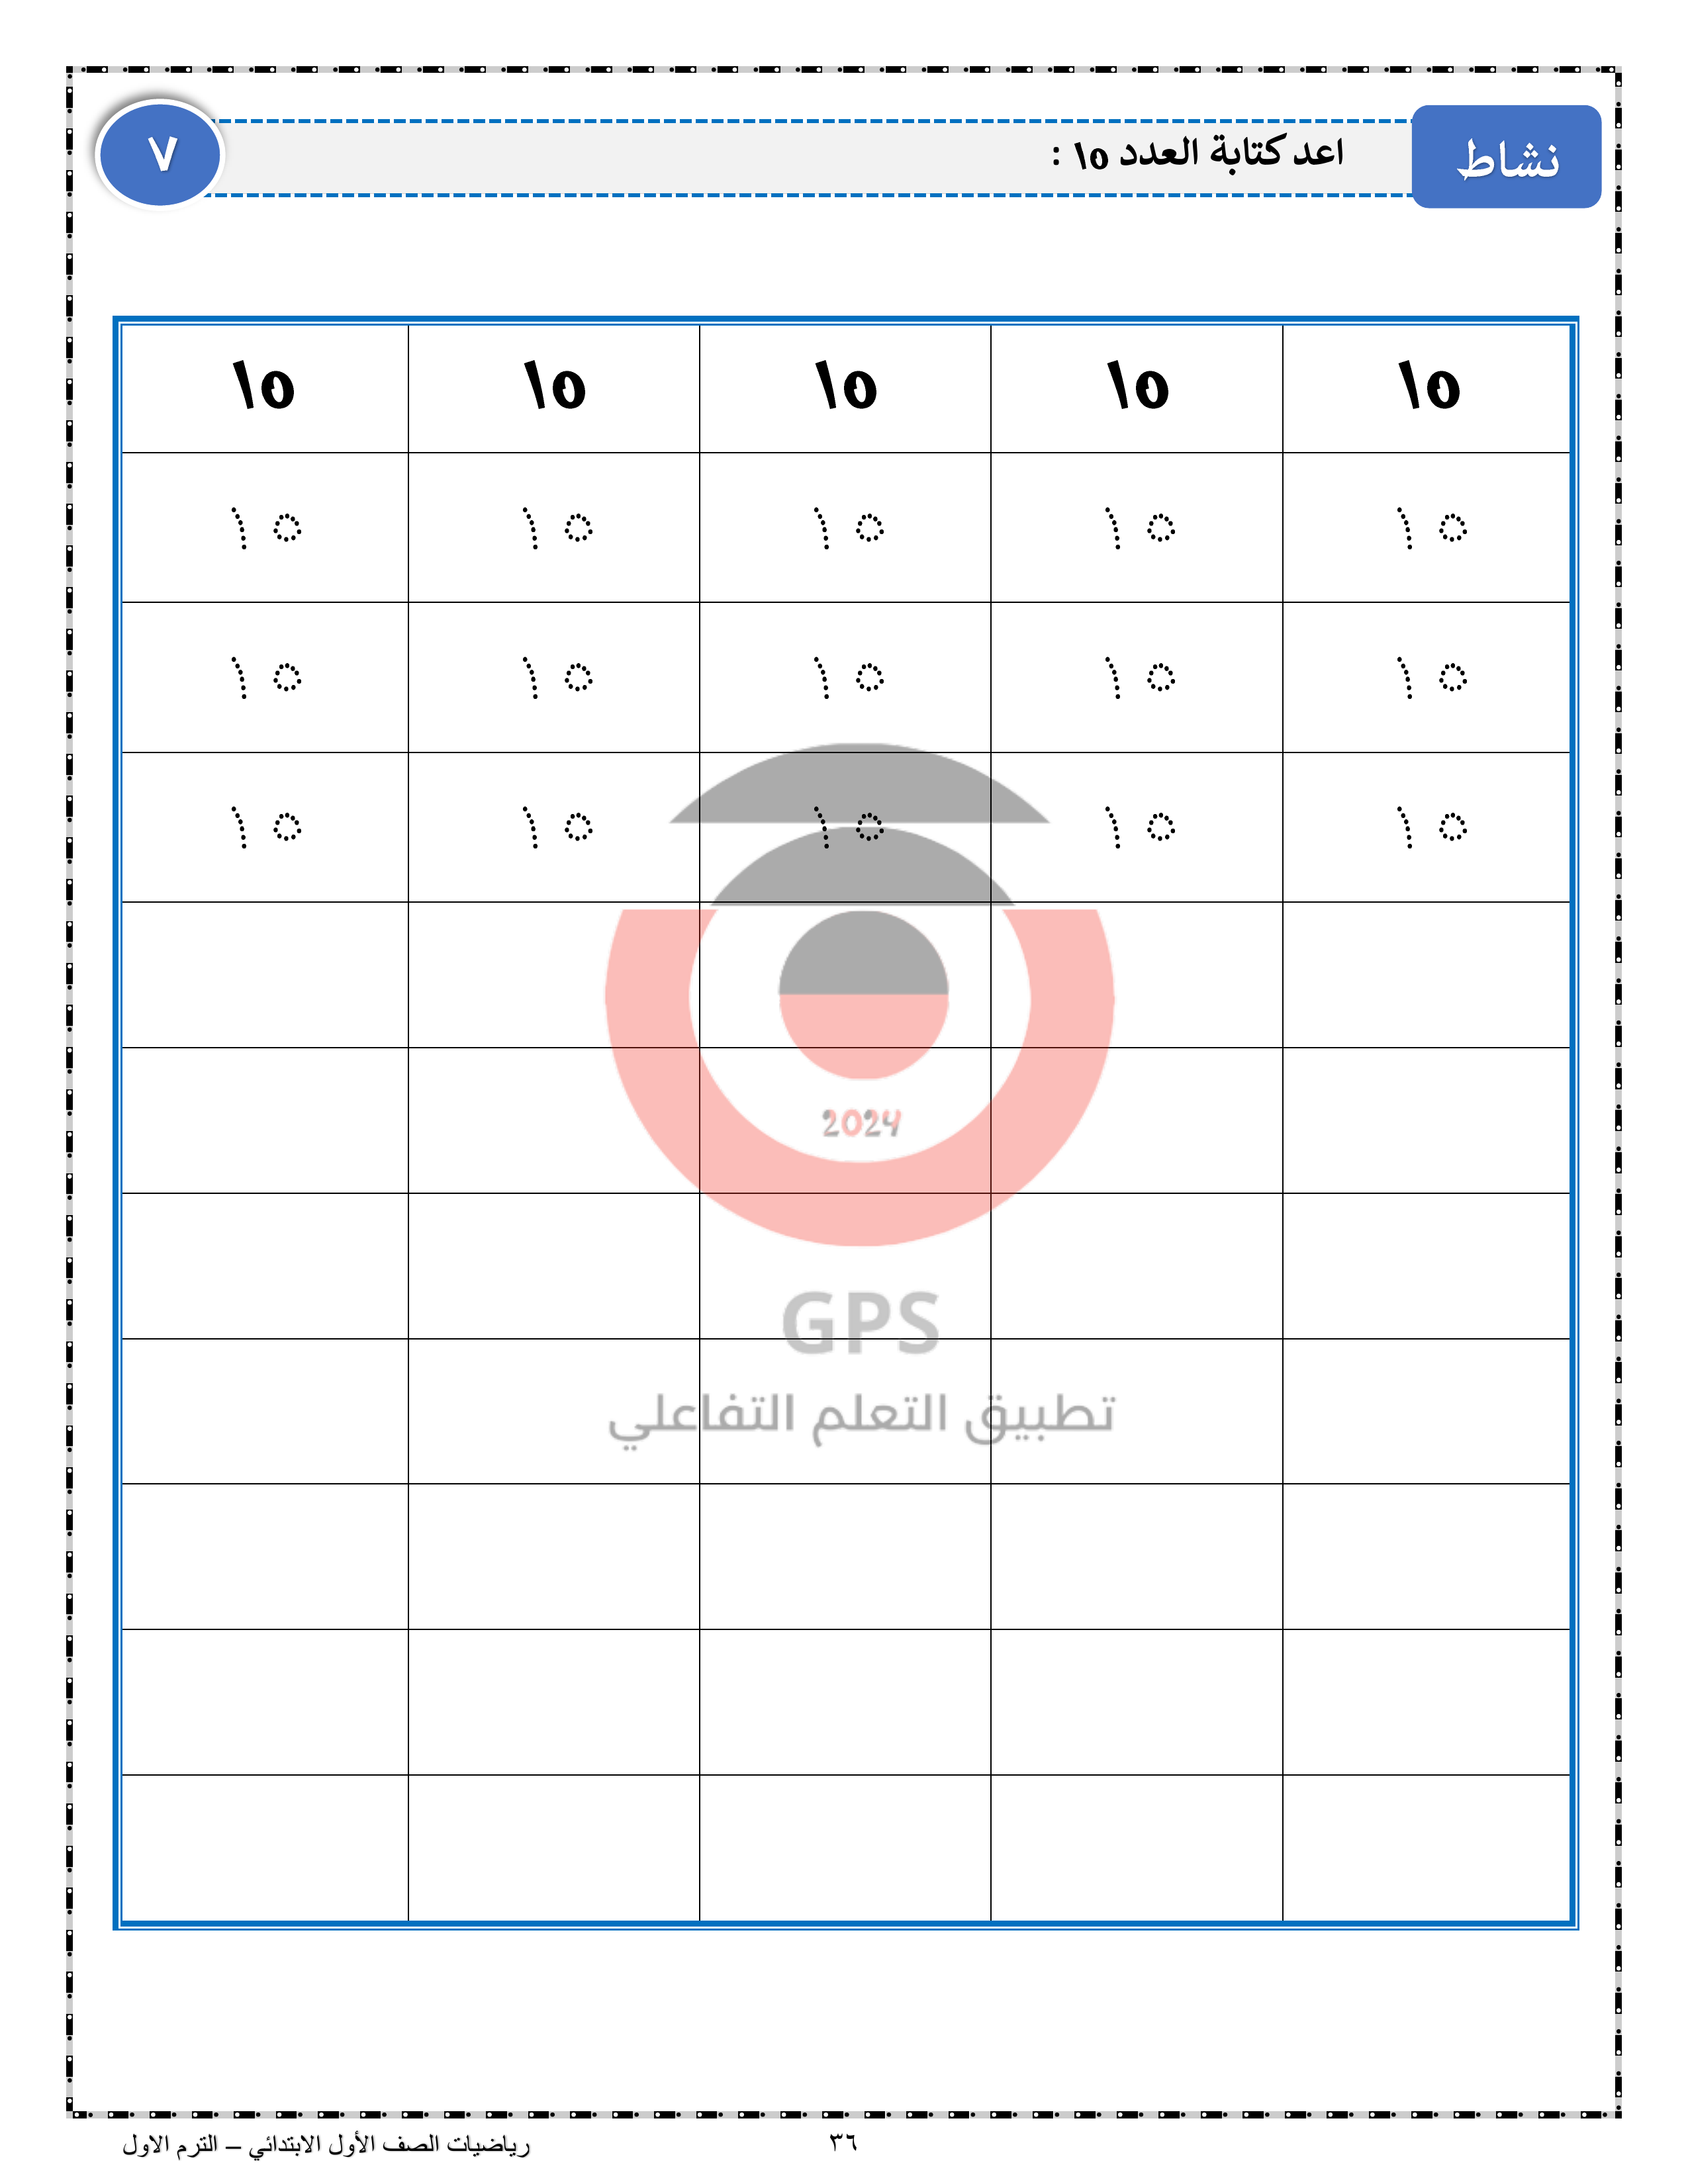 نشاط
اعد كتابة العدد ١٥ :
٧
١٥ ١٥ ١٥ ١٥ ١٥
١٥ ١٥ ١٥ ١٥ ١٥
١٥ ١٥ ١٥ ١٥ ١٥
١٥ ١٥ ١٥ ١٥ ١٥
2024
GPS
تطبيق التعلم التفاعلي
٣٦
رياضيات الصف الأول الابتدائي – الترم الاول